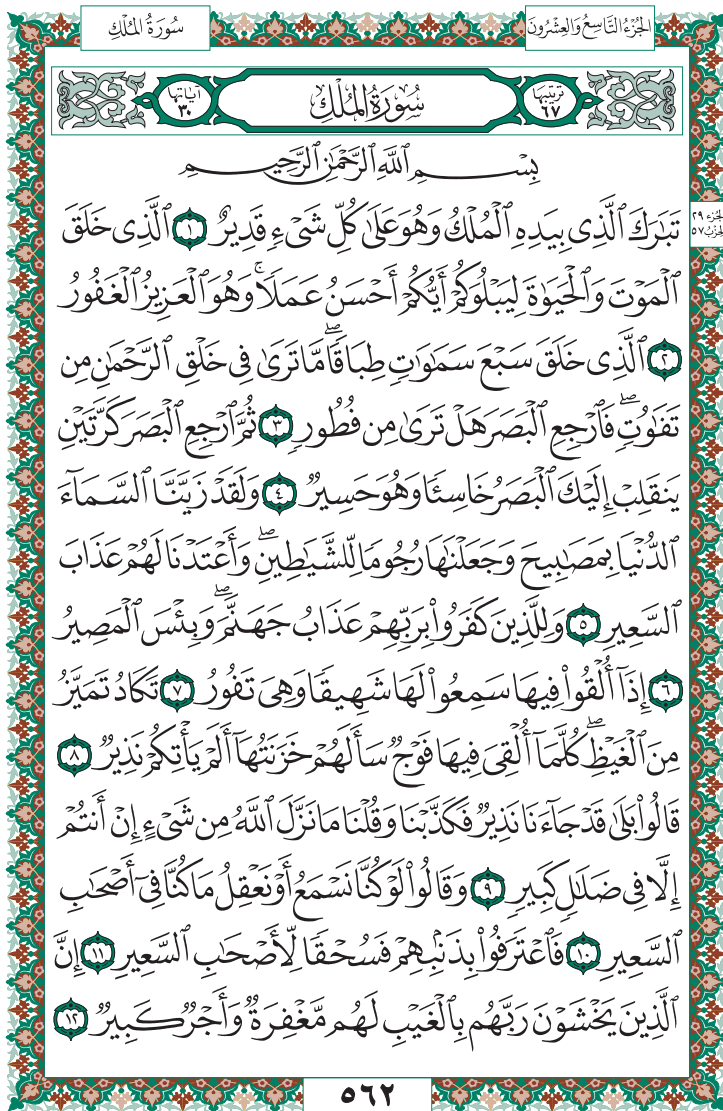 الجُزْءُ التَّاسِعُ وَالعِشْرُونَ
سُورَةُ المُلْكِ
تَرْتِيبُهَا ٦٧
سُورَةُ المُلْكِ
آيَاتُهَا ٣٠
بِسْمِ ٱللَّهِ ٱلرَّحْمَٰنِ ٱلرَّحِيمِ
الجزء ٢٩
الحزب ٥٧
تَبَٰرَكَ ٱلَّذِى بِيَدِهِ ٱلْمُلْكُ وَهُوَ عَلَىٰ كُلِّ شَىْءٍ قَدِيرٌ ١ ٱلَّذِى خَلَقَ
ٱلْمَوْتَ وَٱلْحَيَوٰةَ لِيَبْلُوَكُمْ أَيُّكُمْ أَحْسَنُ عَمَلًا ۚ وَهُوَ ٱلْعَزِيزُ ٱلْغَفُورُ
٢ ٱلَّذِى خَلَقَ سَبْعَ سَمَٰوَٰتٍ طِبَاقًا ۖ مَّا تَرَىٰ فِى خَلْقِ ٱلرَّحْمَٰنِ مِن
تَفَٰوُتٍ ۖ فَٱرْجِعِ ٱلْبَصَرَ هَلْ تَرَىٰ مِن فُطُورٍ ٣ ثُمَّ ٱرْجِعِ ٱلْبَصَرَ كَرَّتَيْنِ
يَنقَلِبْ إِلَيْكَ ٱلْبَصَرُ خَاسِئًا وَهُوَ حَسِيرٌ ٤ وَلَقَدْ زَيَّنَّا ٱلسَّمَآءَ
ٱلدُّنْيَا بِمَصَٰبِيحَ وَجَعَلْنَٰهَا رُجُومًا لِّلشَّيَٰطِينِ ۖ وَأَعْتَدْنَا لَهُمْ عَذَابَ
ٱلسَّعِيرِ ٥ وَلِلَّذِينَ كَفَرُوا۟ بِرَبِّهِمْ عَذَابُ جَهَنَّمَ ۖ وَبِئْسَ ٱلْمَصِيرُ
٦ إِذَآ أُلْقُوا۟ فِيهَا سَمِعُوا۟ لَهَا شَهِيقًا وَهِىَ تَفُورُ ٧ تَكَادُ تَمَيَّزُ
مِنَ ٱلْغَيْظِ ۖ كُلَّمَآ أُلْقِىَ فِيهَا فَوْجٌ سَأَلَهُمْ خَزَنَتُهَآ أَلَمْ يَأْتِكُمْ نَذِيرٌ ٨
قَالُوا۟ بَلَىٰ قَدْ جَآءَنَا نَذِيرٌ فَكَذَّبْنَا وَقُلْنَا مَا نَزَّلَ ٱللَّهُ مِن شَىْءٍ إِنْ أَنتُمْ
إِلَّا فِى ضَلَٰلٍ كَبِيرٍ ٩ وَقَالُوا۟ لَوْ كُنَّا نَسْمَعُ أَوْ نَعْقِلُ مَا كُنَّا فِىٓ أَصْحَٰبِ
ٱلسَّعِيرِ ١٠ فَٱعْتَرَفُوا۟ بِذَنۢبِهِمْ فَسُحْقًا لِّأَصْحَٰبِ ٱلسَّعِيرِ ١١ إِنَّ
ٱلَّذِينَ يَخْشَوْنَ رَبَّهُم بِٱلْغَيْبِ لَهُم مَّغْفِرَةٌ وَأَجْرٌ كَبِيرٌ ١٢
٥٦٢